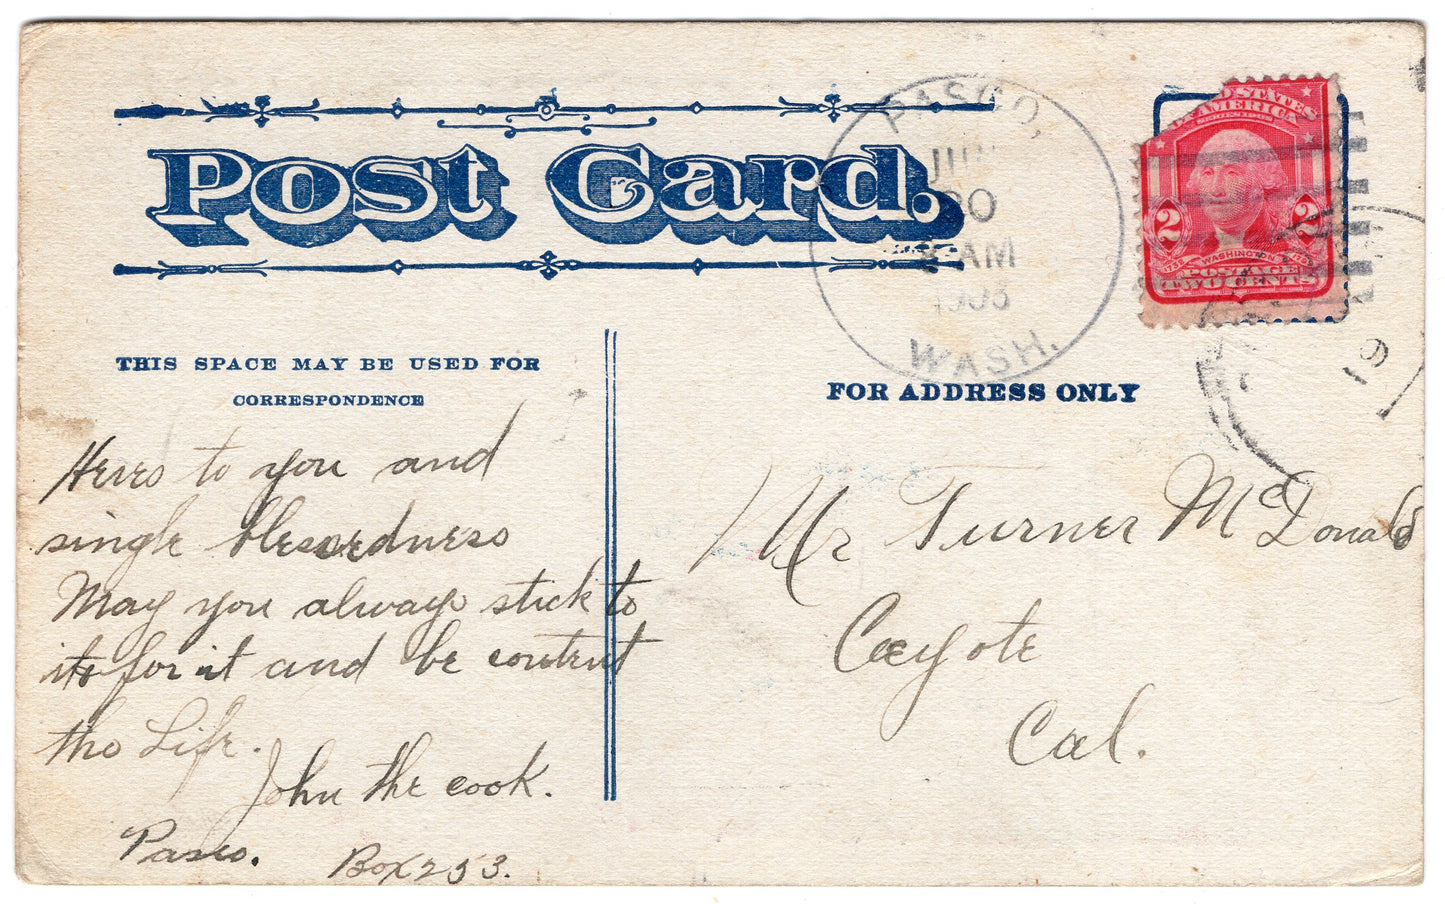 Post Card.
PASCO,
AM
WASH.
D STATES
OF AMERICA
SERIES 1902
2 2
WASHINGTON
POSTAGE
TWO CENTS
THIS SPACE MAY BE USED FOR
CORRESPONDENCE
FOR ADDRESS ONLY
Heres to you and
single blessedness
May you always stick to
its for it and be content
tho Life.
John the cook.
Pasco. Box 253.
Mr Turner McDonald
Caeyote
Cal.